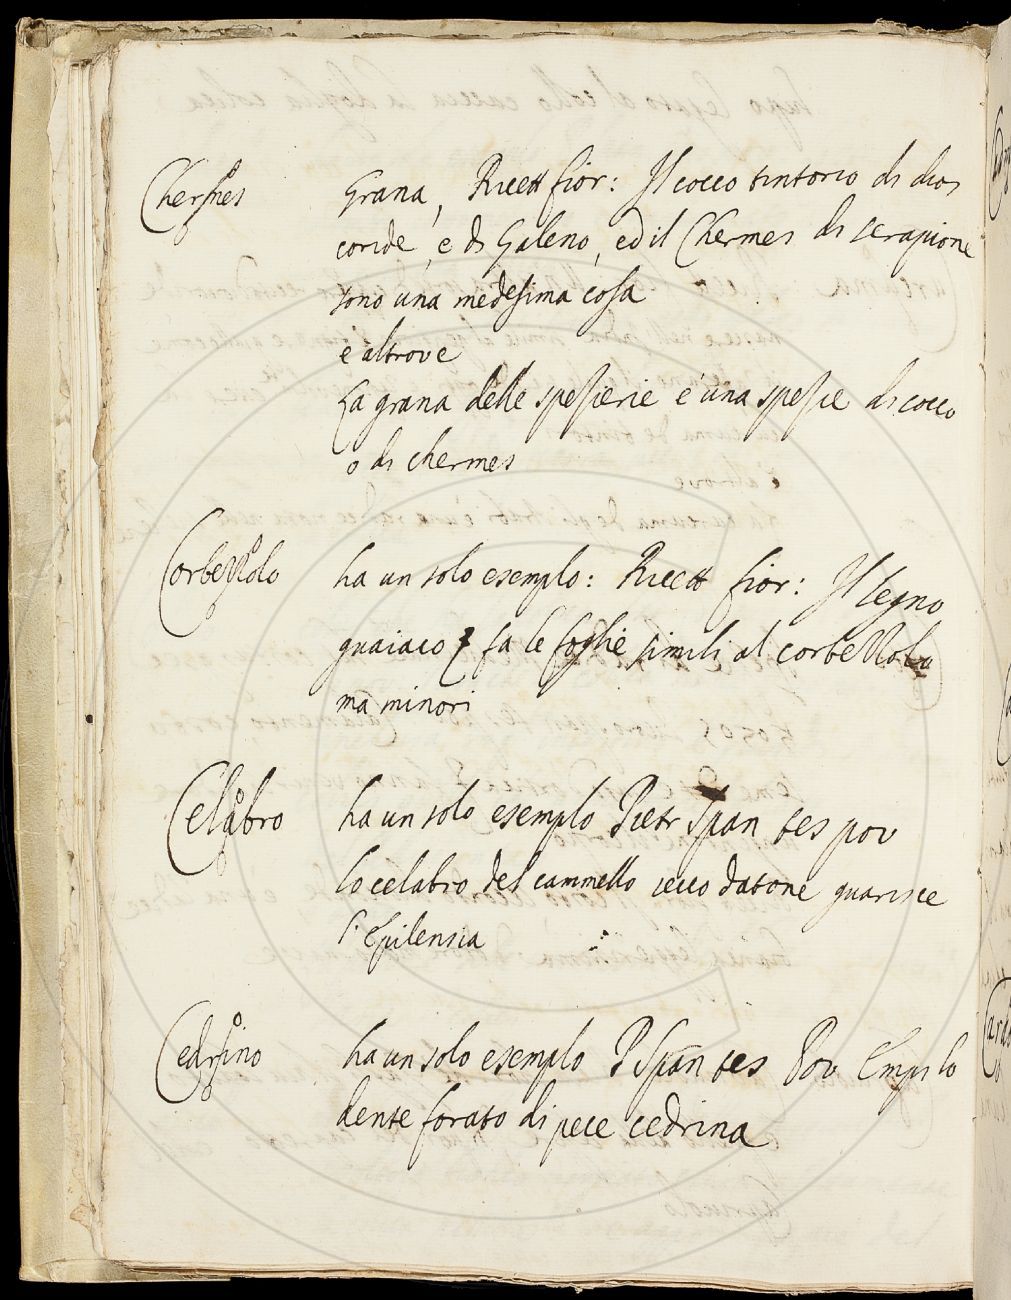 Chermes Grana, Ricett fior: Il cocco tintorio di dios
coride, e di Galeno, ed il Chermes di serapione
sono una medesima cosa
e altrove
La grana delle spezierie e una spezie di cocco
o di chermes
Corbezzolo ha un solo esemplo: Ricett fior: Il legno
guaiaco fa le foglie simili al corbezzolo
ma minori
Celabro ha un solo esemplo Pietr Span tes pov
lo celabro del cammello secco datone guarisce
l'Epilensia
Cedrino ha un solo esemplo P Span tes Pov Empi lo
dente forato di pece cedrina